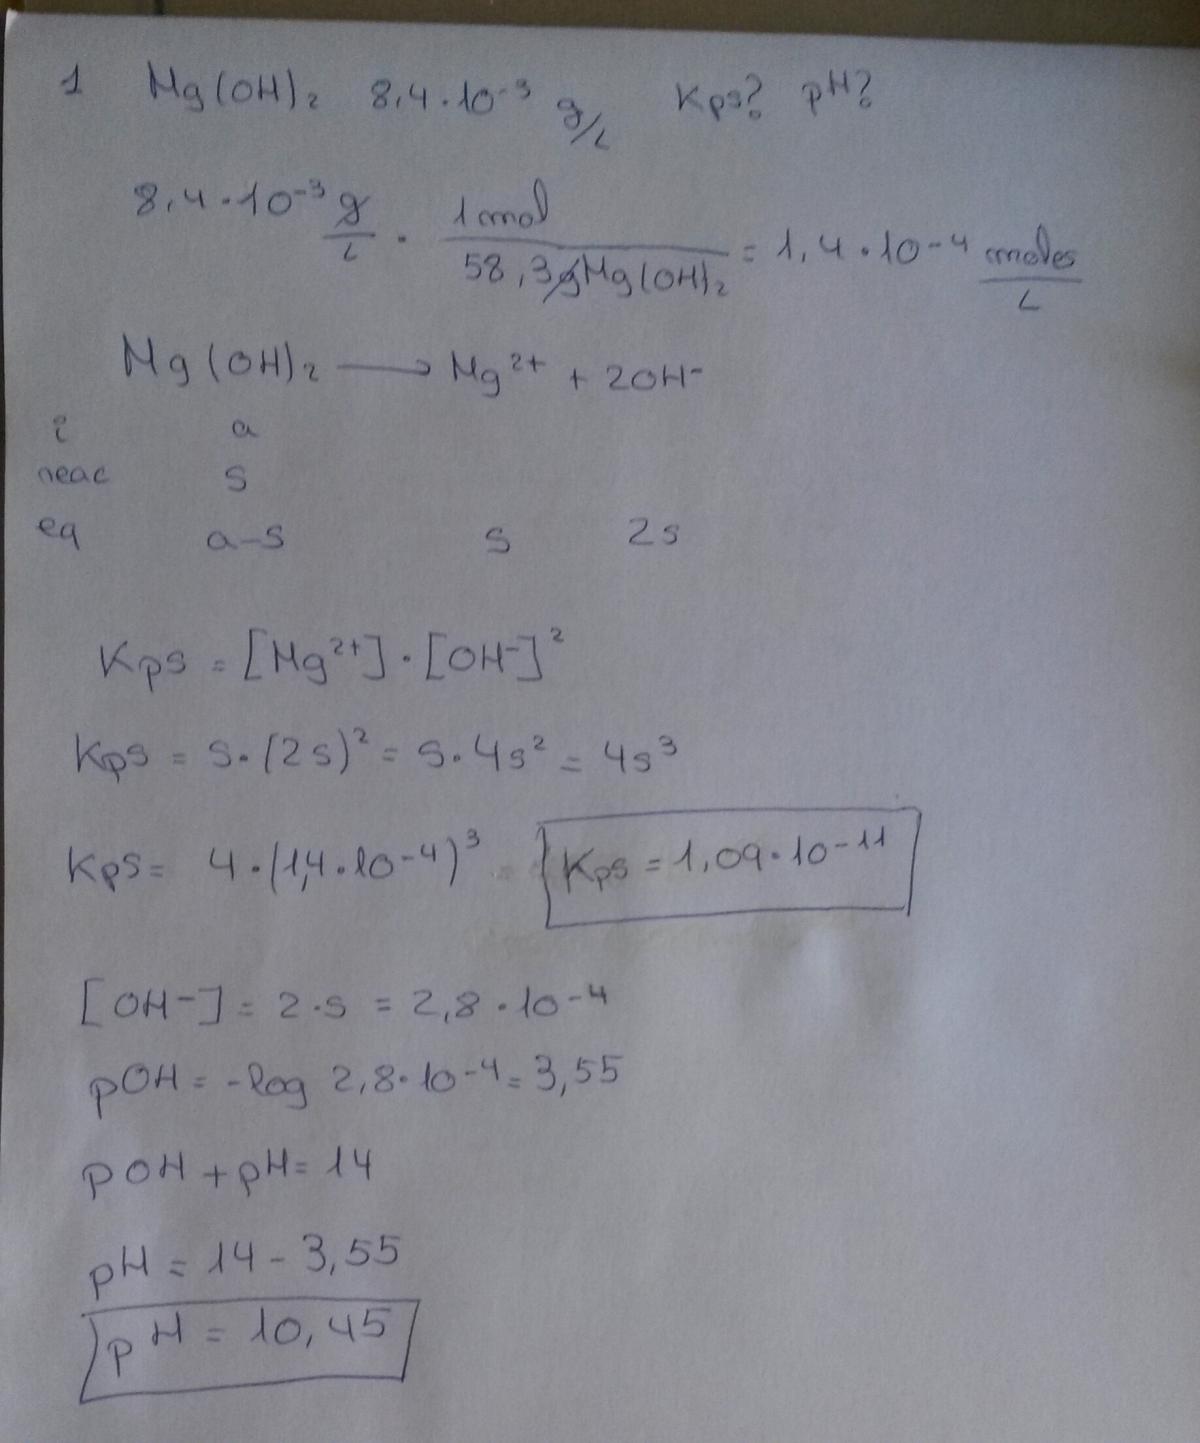 1 Mg(OH)₂ 8,4·10⁻³ g/L Kps? pH?
8,4·10⁻³ g/L · 1 mol / 58,3 g Mg(OH)₂ = 1,4·10⁻⁴ moles/L
Mg(OH)₂ ⟶ Mg²⁺ + 2OH⁻
i a
reac s
eq a-s s 2s
Kps = [Mg²⁺]·[OH⁻]²
Kps = s·(2s)² = s·4s² = 4s³
Kps = 4·(1,4·10⁻⁴)³ Kps = 1,09·10⁻¹¹
[OH⁻] = 2·s = 2,8·10⁻⁴
pOH = -log 2,8·10⁻⁴ = 3,55
pOH + pH = 14
pH = 14 - 3,55
pH = 10,45